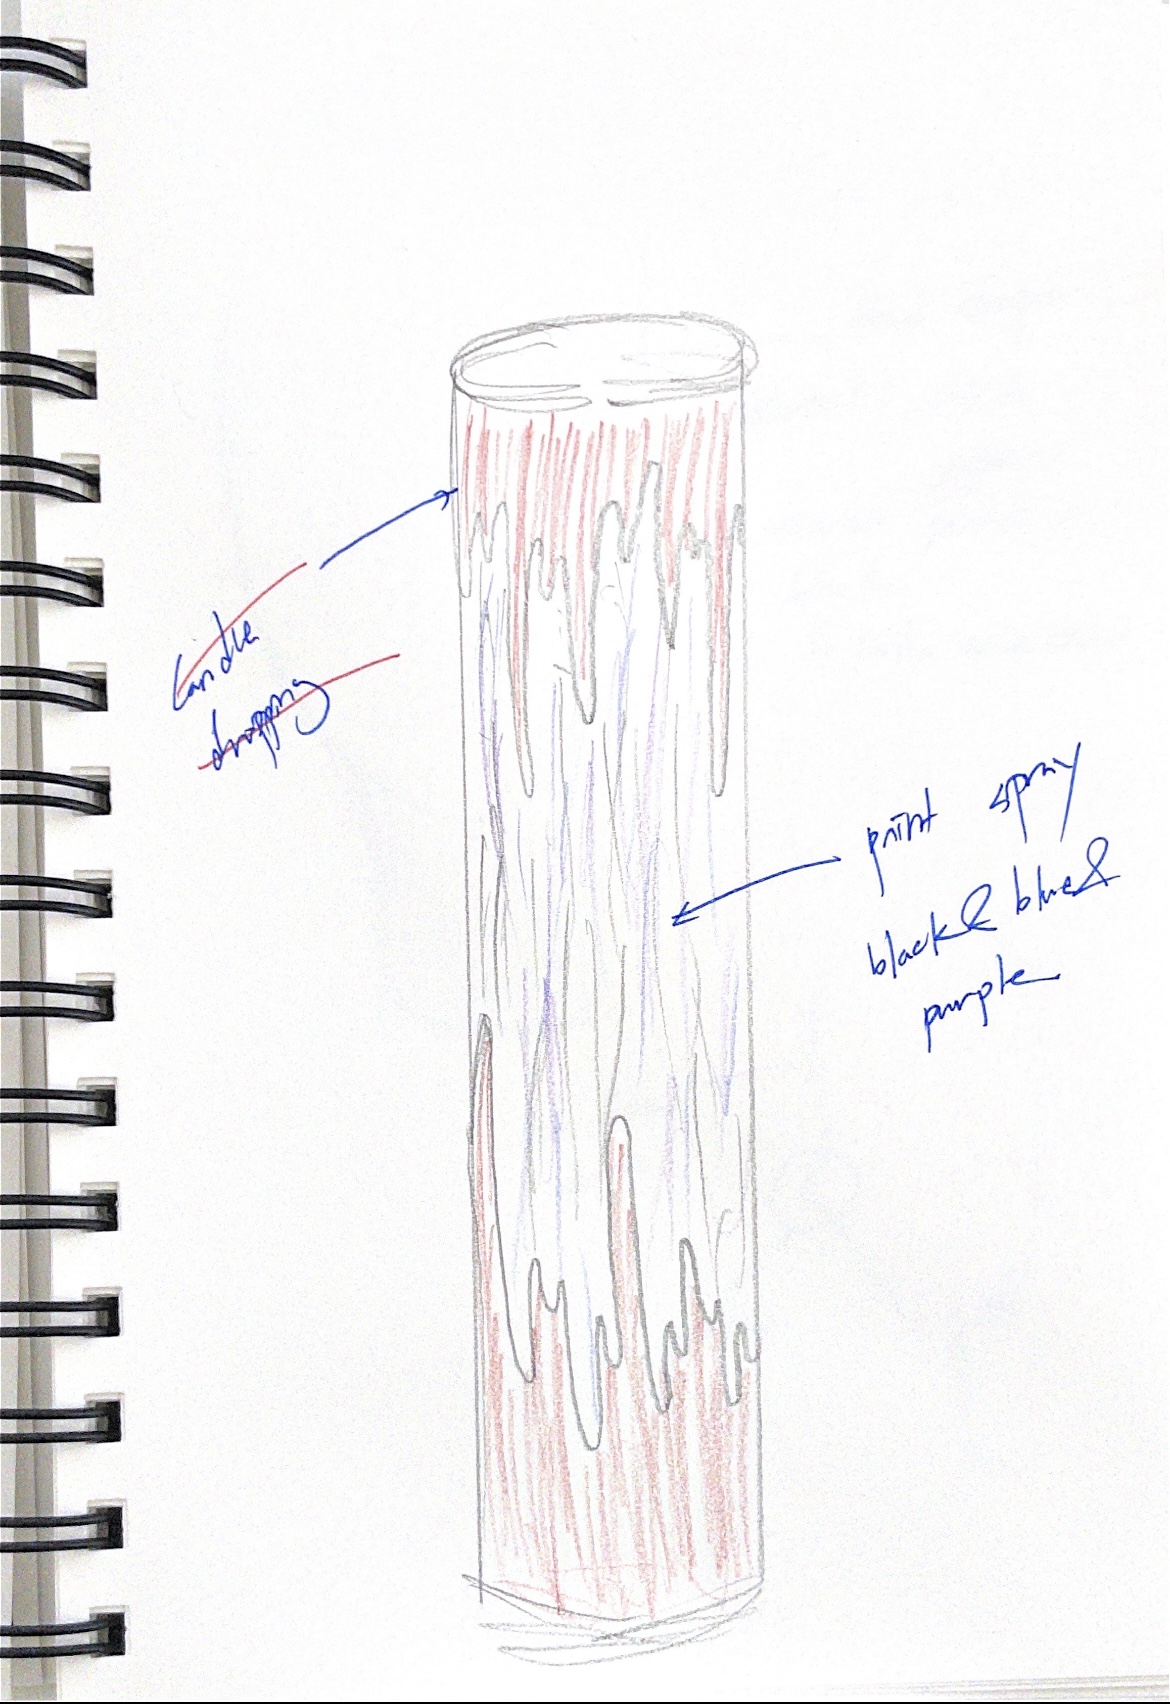 Candle
dropping
paint spray
black & blue &
purple